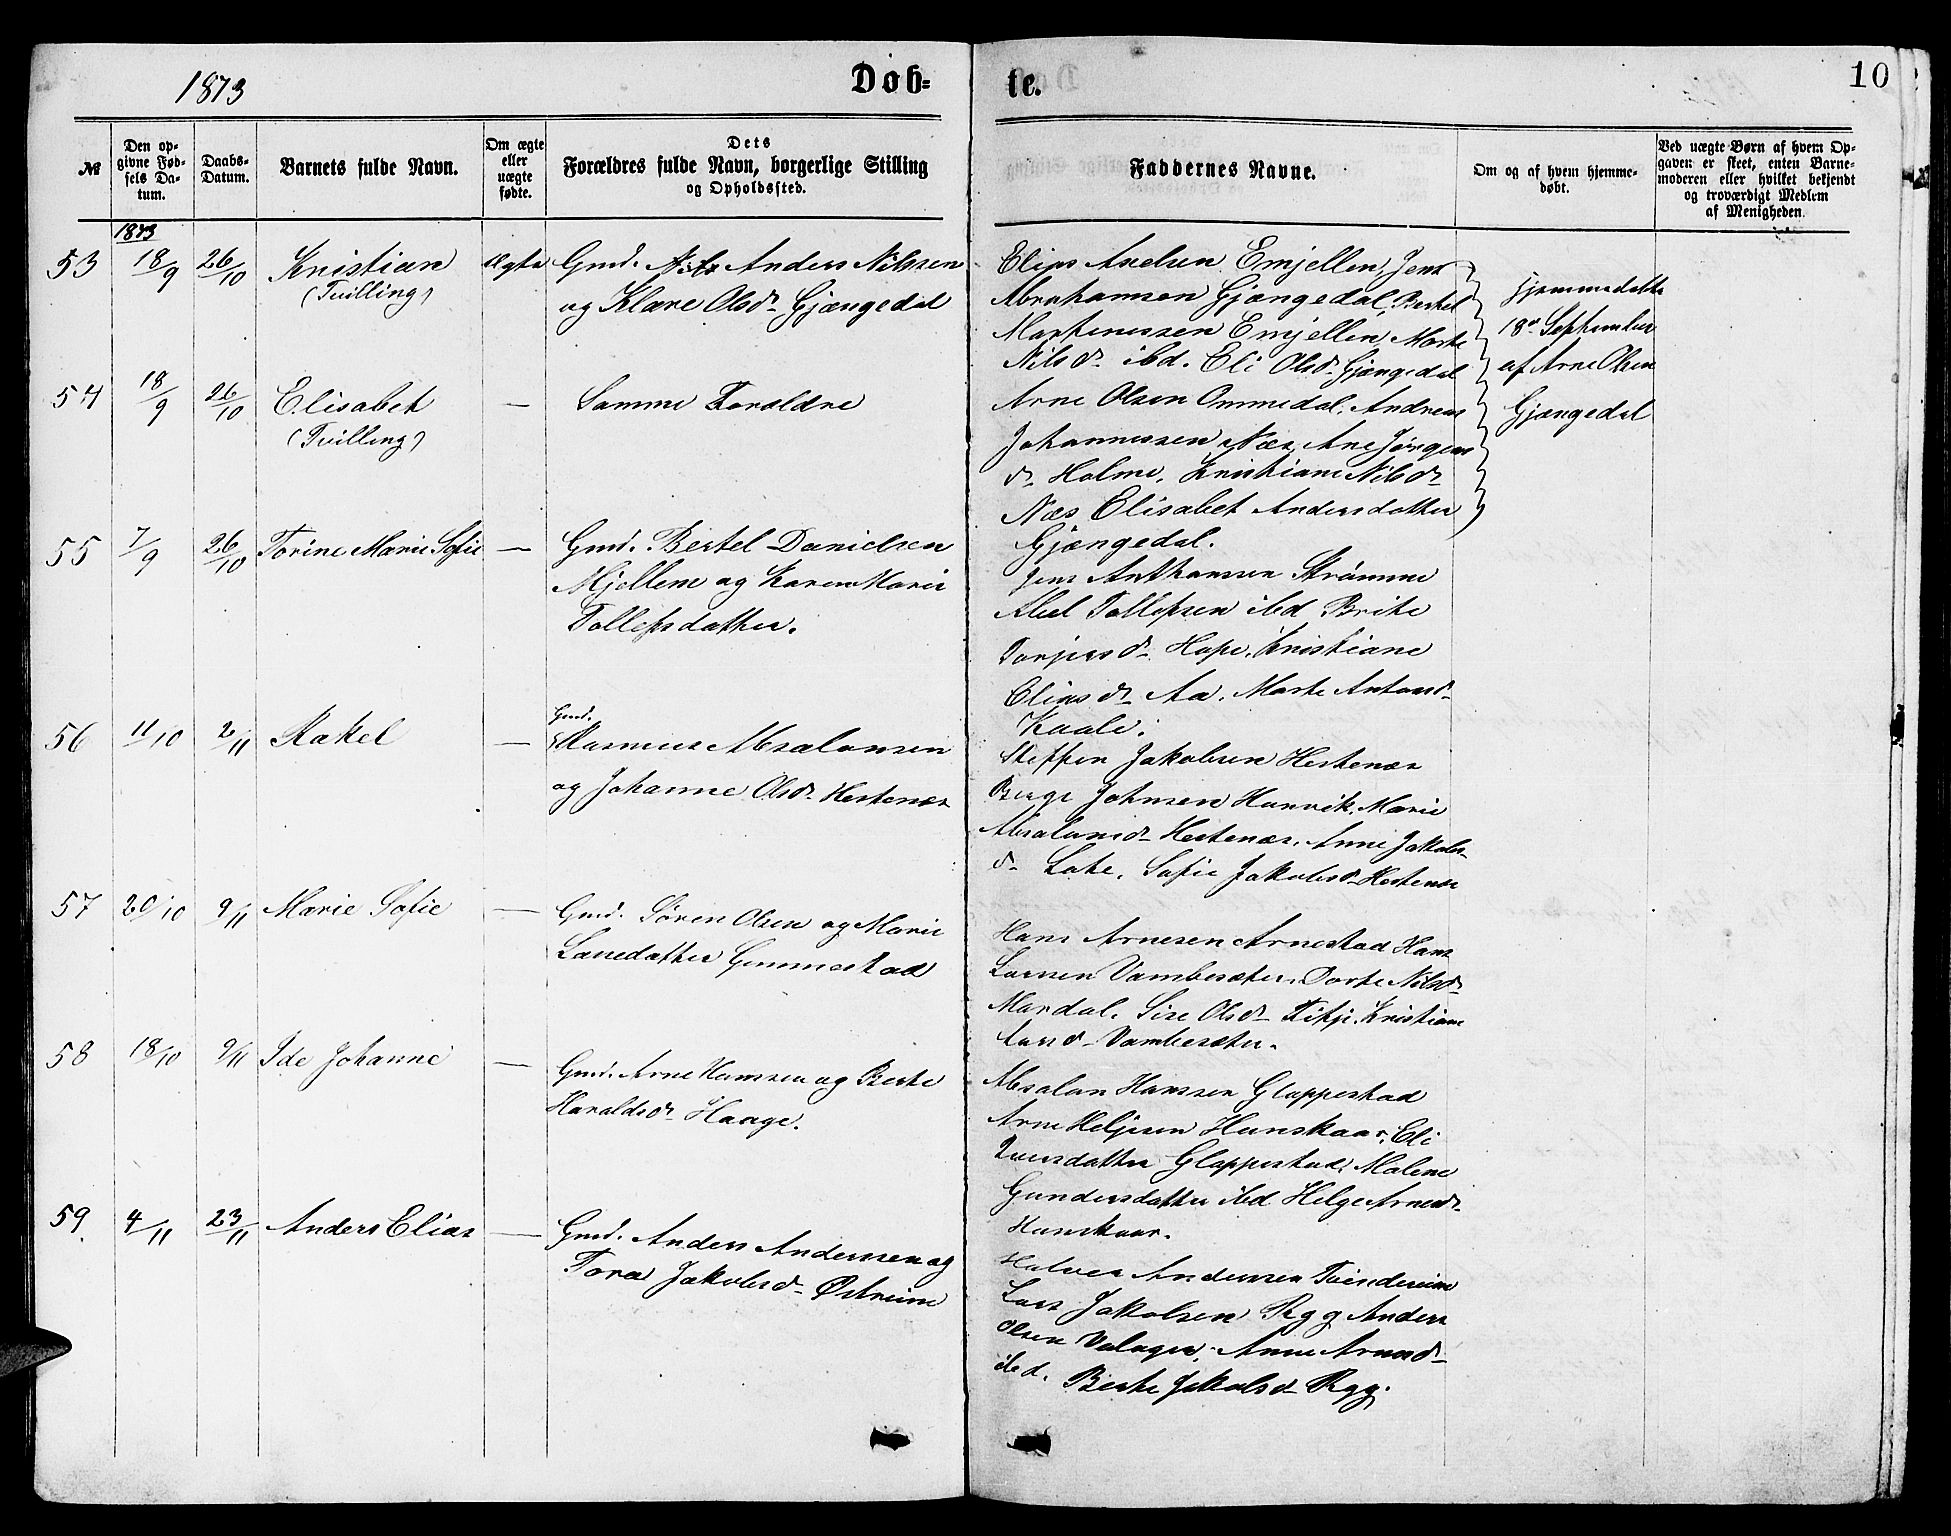 1873
Døb-
te.
10
№
Den op-
givne Fød-
sels Da-
tum.
Daabs-
Datum.
Barnets fulde Navn.
Om ægte
eller
uægte
fødte.
Dets
Forældres fulde Navn, borgerlige Stilling
og Opholdssted.
Faddernes Navne.
Om og af hvem hjemme-
døbt.
Ved uægte Børn af hvem Op-
gaven er skeet, enten Barne-
moderen eller hvilket bekjendt
og troværdigt Medlem
af Menigheden.
1873
53 18/9 26/10 Kristian Ægte Gmd. Nils Anders Nilssen
(Tvilling)
og Klare Olsdr Gjængedal
Elias Axelsen Emjellen, Jens
Abrahamsen Gjængedal, Bertel
Martinussen Emjellen, Marte
Nilsdr ibd. Eli Olsdr Gjængedal
Hjemmedøbte
18de September
af Arne Olsen
Gjængedal
54 18/9 26/10 Elisabet — Samme Forældre
(Tvilling)
Arne Olsen Ommedal, Andreas
Johannessen Næs, Ane Jørgens
dr Holme, Kristiane Nilsdr
Næs Elisabet Andersdatter
Gjængedal.
55 7/9 26/10 Torine Marie Sofie — Gmd. Bertel Danielsen
Mjellem og Karen Marie
Tollefsdatter.
Jens Anthonsen Strømme
Abel Tollefsen ibd Brite
Torjersdr Hope, Kristiane
Eliasdr Aa, Marte Antonsdr
Kaale.
56 11/10 2/11 Rakel —
Gmd.
Rasmus Absalonsen
og Johanne Olsdr Hestenæs
Steffen Jakobsen Hestenæs
Børge Johnsen Hanvik, Marie
Absalonsdr Hestenæs, Anne Jakobs-
dr Lote, Sofie Jakobsdr Hestenæs
57 20/10 9/11 Marie Sofie — Gmd. Søren Olsen og Marie
Lassedatter Gemmestad
Hans Arnesen Arnestad Hans
Larsen Vambesæter, Dorte Nilsdr
Mardal, Sire Olsdr Fitje, Kristiane
Larsdr Vambesæter.
58 18/10 9/11 Ide Johanne — Gmd. Arne Hanssen og Berte
Haraldsdr Hauge.
Absalon Hanssen Gloppestad
Arne Heljesen Hunskaar, Eli
Iversdatter Gloppestad, Malene
Gundersdatter ibd Helge Arnesdr
Hunskaar.
59. 4/11 23/11 Anders Elias — Gmd. Anders Anderssen og
Tora Jakobsdr Østreim
Halvor Anderssen Tvinnereim
Lars Jakobsen Rygg Anders
Olsen Valager, Anne Arnesdr
ibd. Berte Jakobsdr Rygg.